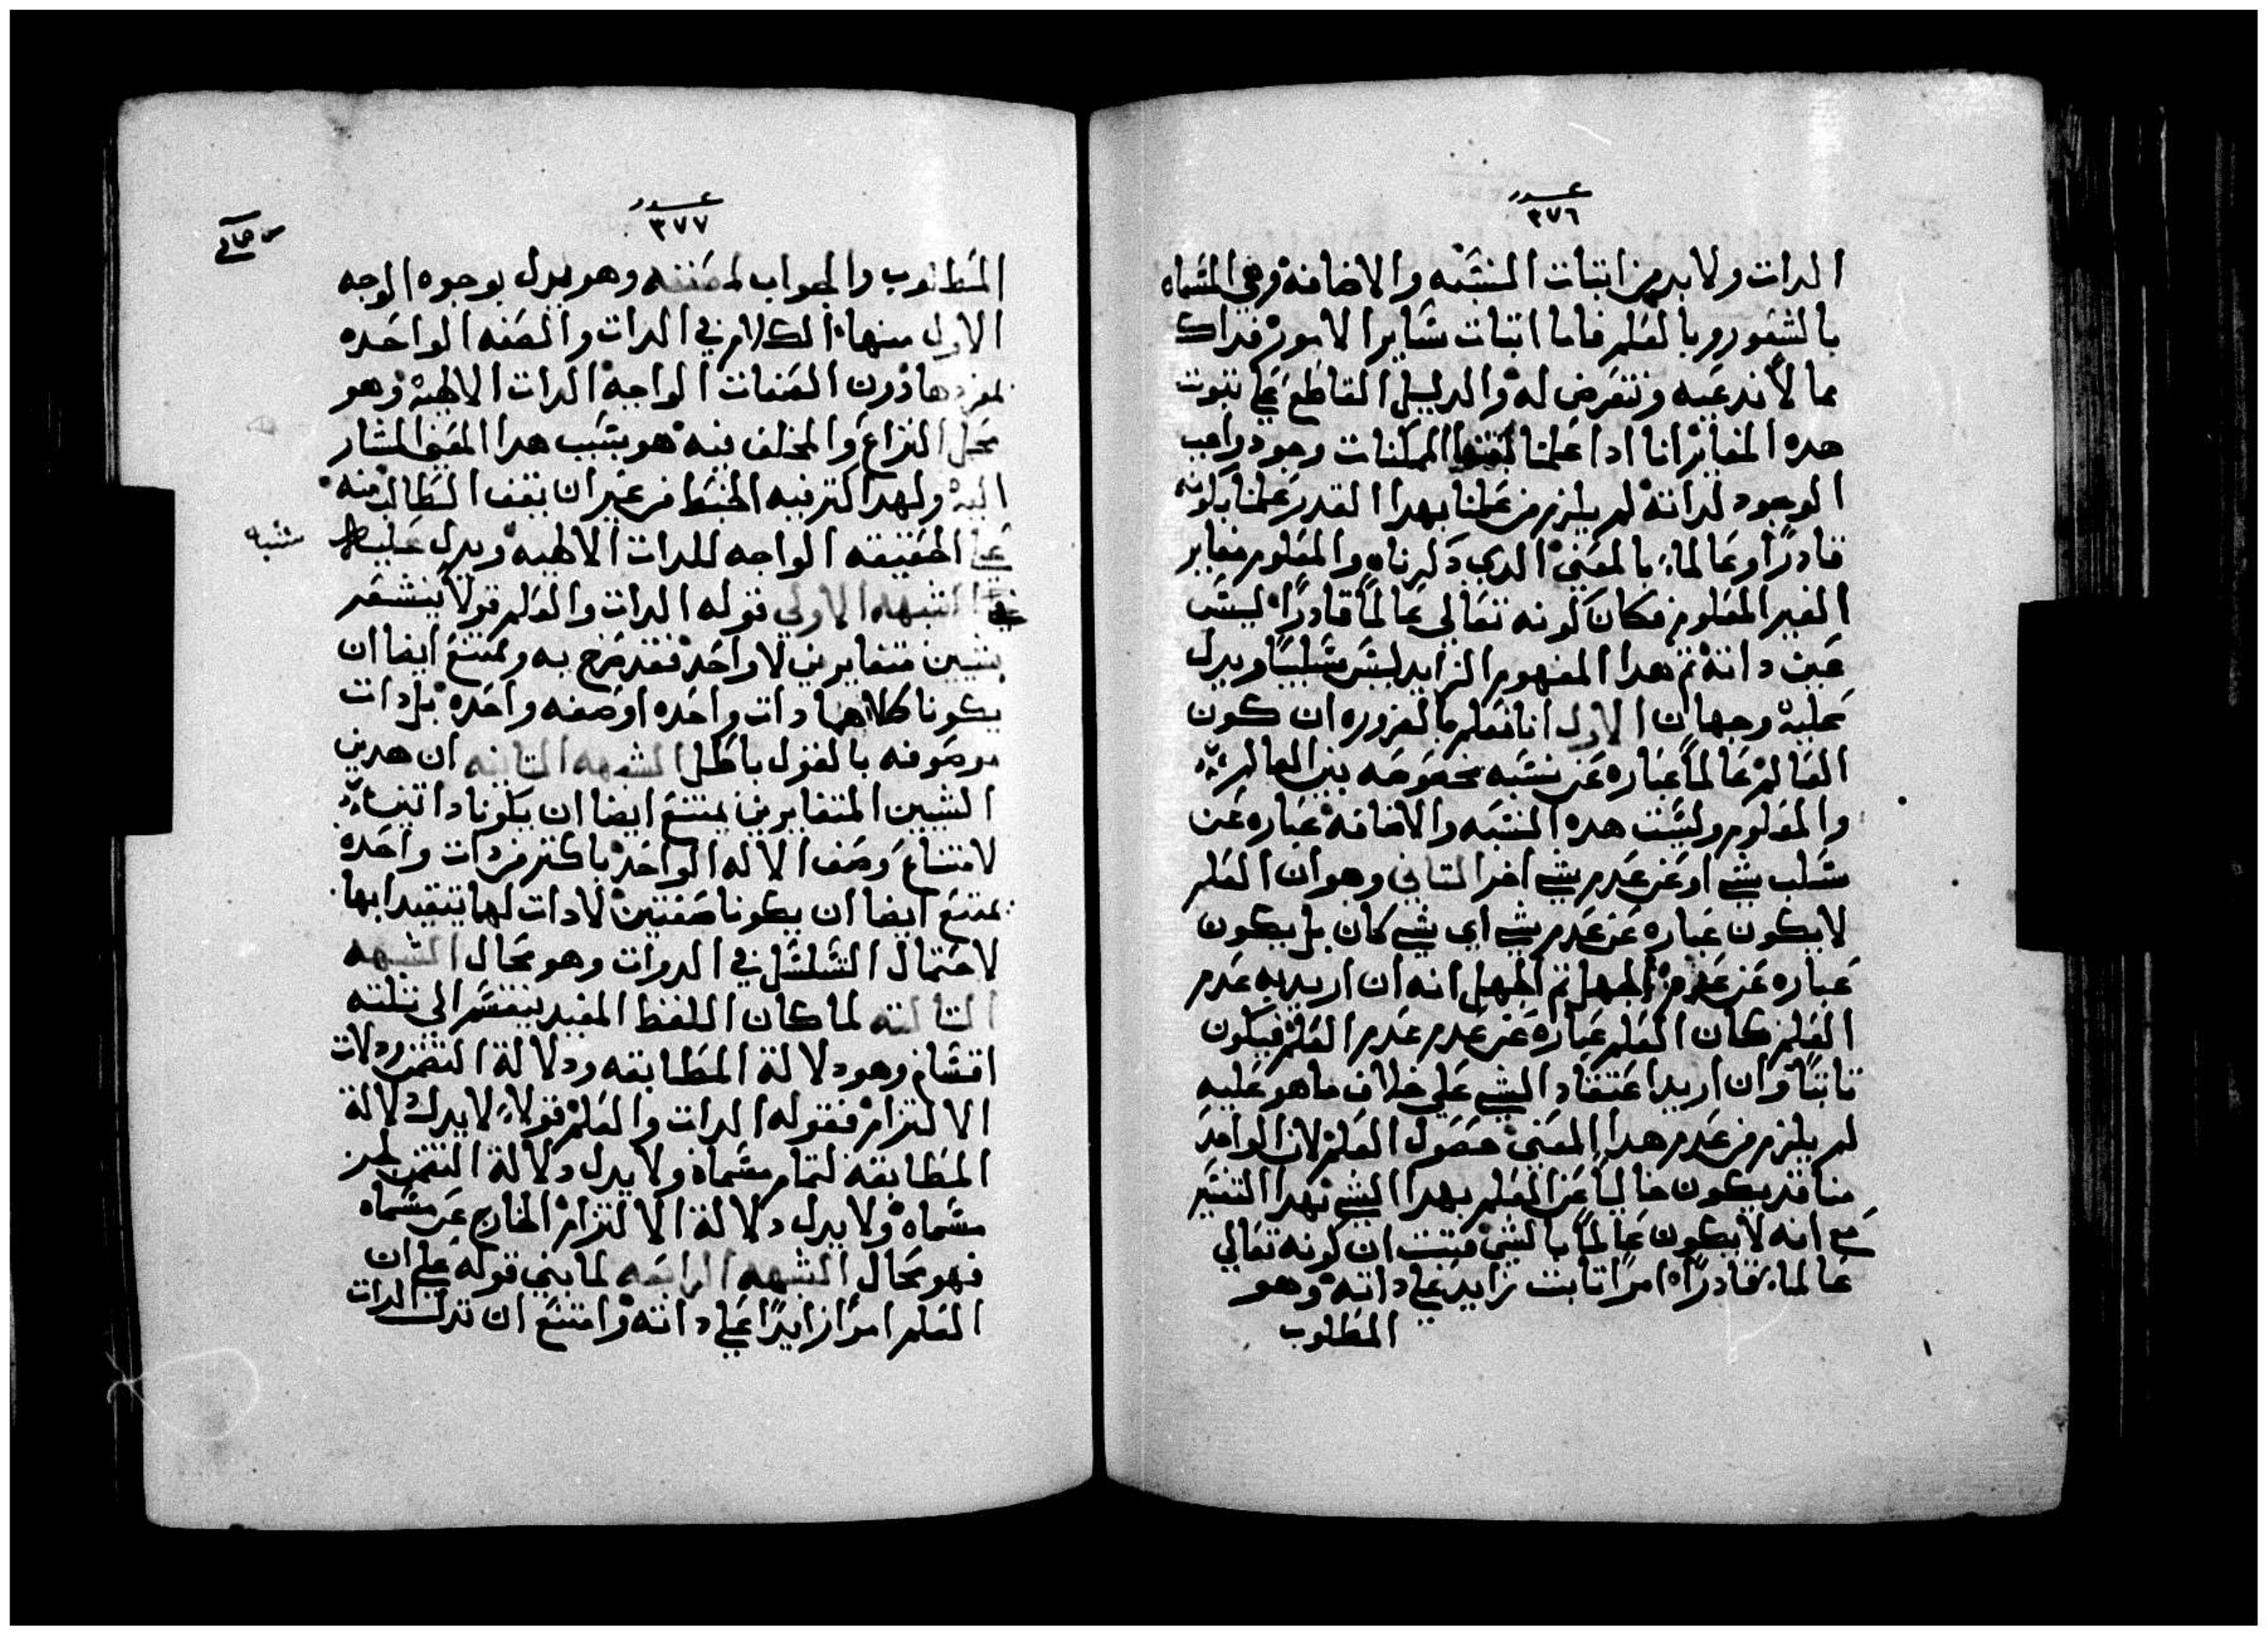 عدد
٣٧٦
الدات ولا بد من اتبات النسبه والاضافه وهي المسماه
بالشعور وبالعلم فاما اتبات ساير الامور فداك
مما لا ندعيه ونتعرض له والدليل القاطع علي تبوت
هده المغايره انا ادا علمنا الممكنات وجود واجب
الوجود لداته لم يلزم من علمنا بهدا القدر علمنا بكونه
قادرًا وعالمًا بالمعني الدي دكرناه والمعلوم مغاير
الغير المعلوم فكان كونه تعالي عالمًا قادرًا ليس
عين داته تم هدا المفهوم الزايد ليس سلبيًا ويدل
عليه وجهان الاول انا نعلم بالضروره ان كون
العالم عالمًا عباره عن نسبه مخصوصه بين العالم
والمعلوم وليست هده النسبه والاضافه عباره عن
سلب شي او عن عدم شي اخر التاني وهو ان العلم
لا يكون عباره عن عدم شي اي شي كان بل يكون
عباره عن عدم الجهل تم الجهل انه ان اريد به عدم
العلم كان العلم عباره عن عدم عدم العلم فيكون
تابتًا وان اريد اعتقاد الشي علي خلاف ما هو عليه
لم يلزم من عدم هدا المعني حصول العلم لان الواحد
منا قد يكون خاليًا عن العلم بهدا الشي بهدا التفسير
مع انه لا يكون عالمًا بالشي فتبت ان كونه تعالي
عالمًا قادرًا امرًا تابت زايد علي داته وهو
المطلوب
عدد
٣٧٧
المطلوب والجواب وهو يدل بوجوه الوجه
الاول منها الكلام في الدات والصفه الواحده
بمفردها دون الصفات الواجبه الدات الالهيه وهو
محل النزاع والمختلف فيه هو بسبب هدا المعني المشار
اليه ولهدا اكتر فيه الخبط من غير ان يقف الطالب منه
علي الحقيقه الواجبه للدات الالهيه ويدل عليه
شبه
الشبهه الاولي قوله الدات والعلم قولًا يشعر
بشيين متغايرين لا واحد فقد صرح به ويمتنع ايضا ان
يكونا كلاهما دات واحده او صفه واحده بل دات
موصوفه بالقول باطل الشبهه التانيه ان هدين
الشيين المتغايرين يمتنع ايضا ان يكونا داتين
لامتناع وصف الاله الواحد باكتر من دات واحده
يمتنع ايضا ان يكونا صفتين لا دات لها يتقيدا بها
لاحتمال التسلسل في الدوات وهو محال الشبهه
التالته لما كان اللفظ المفيد ينقسم الي تلته
اقسام وهو دلالة المطابقه ودلالة التضمن ودلات
الالتزام فقوله الدات والعلم قولًا لا يدل دلالة
المطابقه لتمام مسماه ولا يدل دلالة التضمن لجز
مسماه ولا يدل دلالة الالتزام الخارج عن مسماه
فهو محال الشبهه الرابعه لما بني قوله علي ان
العلم امرًا زايدًا علي داته وامتنع ان تدل الدات